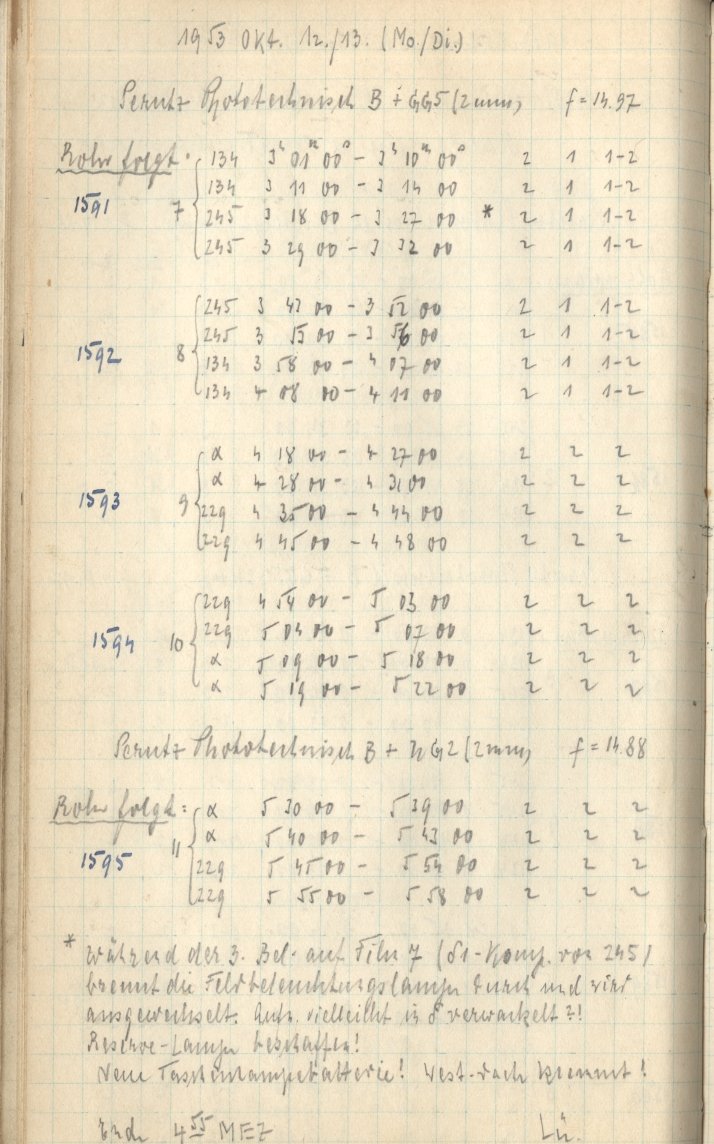 1953 Okt. 12./13. (Mo./Di.)
Perutz Phototechnisch B + GG5 (2mm) f = 14.97
Rohr folgt:
134 3ʰ 01ᵐ 00ˢ – 3ʰ 10ᵐ 00ˢ 2 1 1-2
134 3 11 00 – 3 14 00 2 1 1-2
1591 7 { 245 3 18 00 – 3 27 00 * 2 1 1-2
245 3 29 00 – 3 32 00 2 1 1-2
245 3 43 00 – 3 52 00 2 1 1-2
245 3 53 00 – 3 56 00 2 1 1-2
1592 8 { 134 3 58 00 – 4 07 00 2 1 1-2
134 4 08 00 – 4 11 00 2 1 1-2
α 4 18 00 – 4 27 00 2 2 2
α 4 28 00 – 4 31 00 2 2 2
1593 9 { 229 4 35 00 – 4 44 00 2 2 2
229 4 45 00 – 4 48 00 2 2 2
229 4 54 00 – 5 03 00 2 2 2
229 5 04 00 – 5 07 00 2 2 2
1594 10 { α 5 09 00 – 5 18 00 2 2 2
α 5 19 00 – 5 22 00 2 2 2
Perutz Phototechnisch B + NG2 (2mm) f = 14.88
Rohr folgt:
α 5 30 00 – 5 39 00 2 2 2
α 5 40 00 – 5 43 00 2 2 2
1595 11 { 229 5 45 00 – 5 54 00 2 2 2
229 5 55 00 – 5 58 00 2 2 2
* Während der 3. Bel. auf Film 7 (δ1-Komp. von 245)
brennt die Feldbeleuchtungslampe durch und wird
ausgewechselt. Aufn. vielleicht in δ verwackelt?!
Reserve-Lampe beschaffen!
Neue Taschenlampebatterie! West-dach klemmt!
Ende 4 55 MEZ Lü.